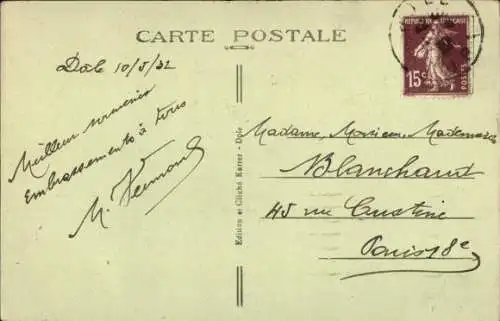 CARTE POSTALE
Dole 10/5/32
Meilleur souvenir
Embrassements à tous
Edition et Cliché Karrer - Dole
REPUBLIQUE FRANÇAISE
15c
POSTES
Madame, Monsieur, Mademoiselle
Blanchard
45 rue Custine
Paris 18e